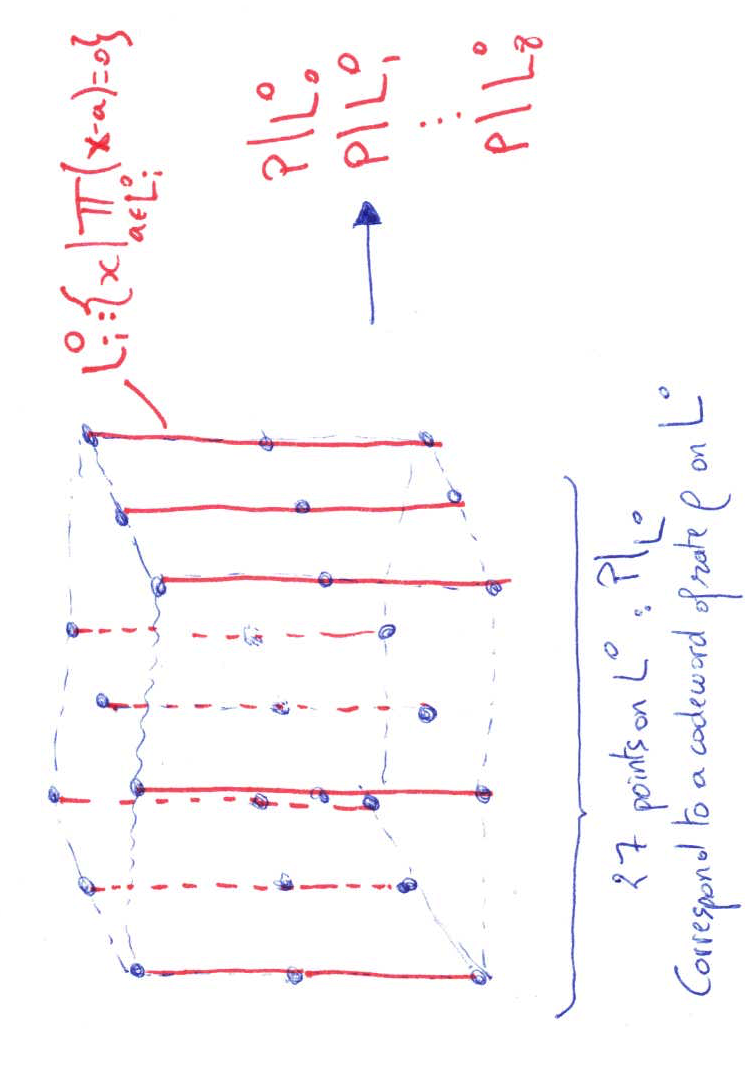 L⁰ᵢ : {x | ∏ (x-a)=0}
a∈L⁰ᵢ
P|L⁰₀
P|L⁰₁
⋮
P|L⁰₈
27 points on L⁰ : P|L⁰
Correspond to a codeword of rate ρ on L⁰